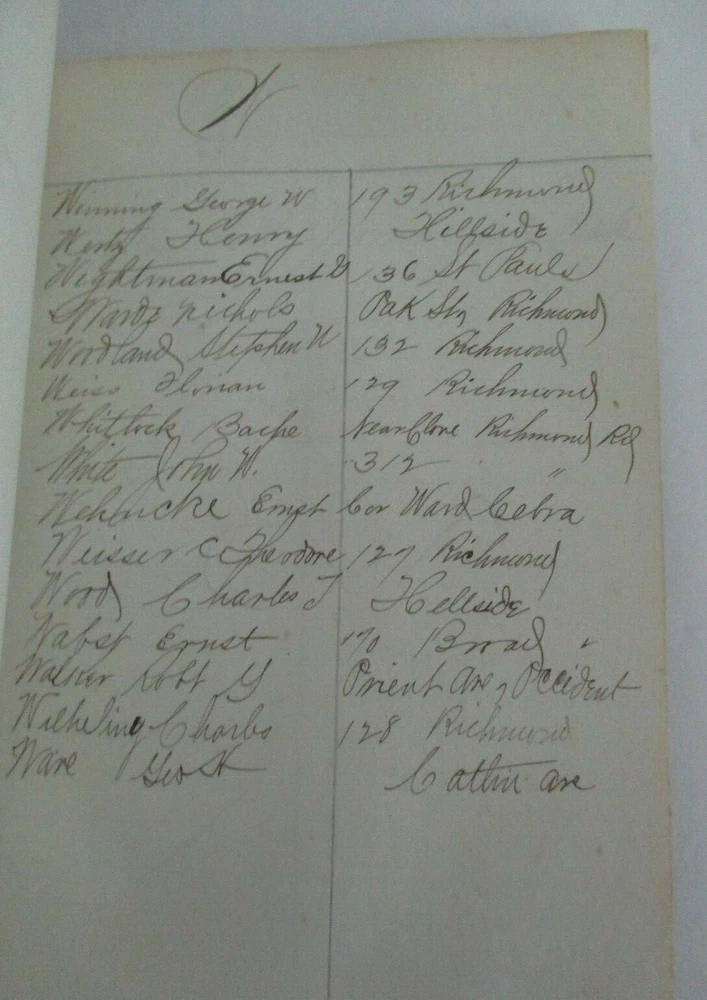 W
Winning George W 193 Richmond
Henry Hillside
Wightman Ernest 136 St Pauls
Ward Nichols Oak St, Richmond
Woodland Stephen W 132 Richmond
Weiss Florian 129 Richmond
Whitlock Bache Near Clove Richmond Rd
White John W. 312 "
Ernst Cor Ward Cebra
Weisser C Theodore 127 Richmond
Wood Charles T Hillside
Wabst Ernst 170 Broad "
Walser Robt G Orient Ave, Occident
Charles 128 Richmond
Ware Geo H Catlin ave